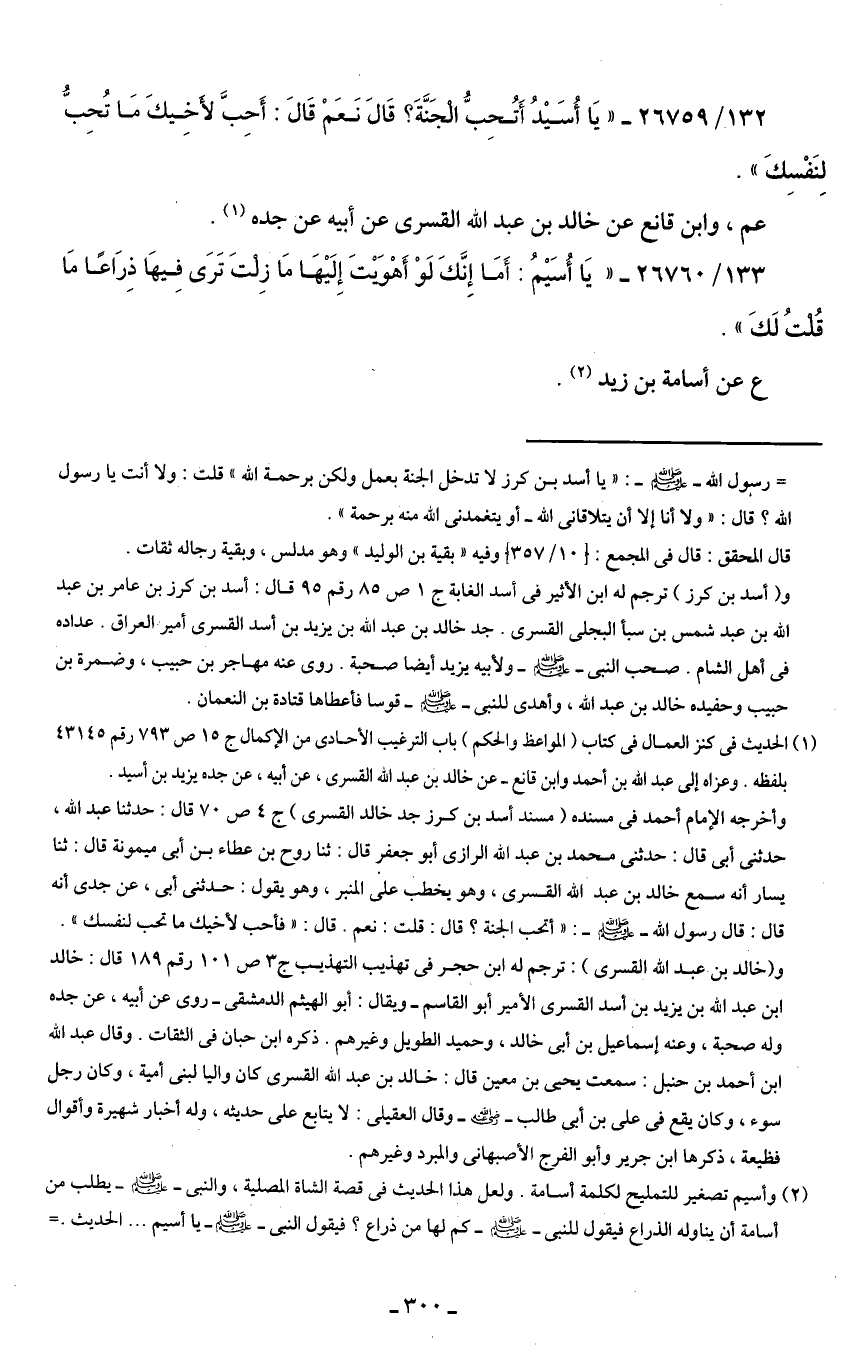 ١٣٢/ ٢٦٧٥٩ ـ « يَا أُسَيْدُ أَتُحِبُّ الْجَنَّةَ؟ قَالَ نَعَمْ قَالَ : أَحِبَّ لأَخِيكَ مَا تُحِبُّ
لِنَفْسِكَ » .
عم ، وابن قانع عن خالد بن عبد الله القسرى عن أبيه عن جده (١) .
١٣٣/ ٢٦٧٦٠ ـ « يَا أُسَيْمُ : أَمَا إِنَّكَ لَوْ أَهْوَيْتَ إِلَيْهَا مَا زِلْتَ تَرَى فِيهَا ذِرَاعًا مَا
قُلْتُ لَكَ » .
ع عن أسامة بن زيد (٢) .
= رسول الله ـ ﷺ ـ : « يا أسد بن كرز لا تدخل الجنة بعمل ولكن برحمة الله » قلت : ولا أنت يا رسول
الله ؟ قال : « ولا أنا إلا أن يتلاقانى الله ـ أو يتغمدنى الله منه برحمة » .
قال المحقق : قال فى المجمع : {١٠/ ٣٥٧} وفيه « بقية بن الوليد » وهو مدلس ، وبقية رجاله ثقات .
و( أسد بن كرز ) ترجم له ابن الأثير فى أسد الغابة ج ١ ص ٨٥ رقم ٩٥ قال : أسد بن كرز بن عامر بن عبد
الله بن عبد شمس بن سبأ البجلى القسرى . جد خالد بن عبد الله بن يزيد بن أسد القسرى أمير العراق . عداده
فى أهل الشام . صحب النبى ـ ﷺ ـ ولأبيه يزيد أيضا صحبة . روى عنه مهاجر بن حبيب ، وضمرة بن
حبيب وحفيده خالد بن عبد الله ، وأهدى للنبى ـ ﷺ ـ قوسا فأعطاها قتادة بن النعمان .
(١) الحديث فى كنز العمال فى كتاب ( المواعظ والحكم ) باب الترغيب الأحادى من الإكمال ج ١٥ ص ٧٩٣ رقم ٤٣١٤٥
بلفظه . وعزاه إلى عبد الله بن أحمد وابن قانع ـ عن خالد بن عبد الله القسرى ، عن أبيه ، عن جده يزيد بن أسيد .
وأخرجه الإمام أحمد فى مسنده ( مسند أسد بن كرز جد خالد القسرى ) ج ٤ ص ٧٠ قال : حدثنا عبد الله ،
حدثنى أبى قال : حدثنى محمد بن عبد الله الرازى أبو جعفر قال : ثنا روح بن عطاء بن أبى ميمونة قال : ثنا
يسار أنه سمع خالد بن عبد الله القسرى ، وهو يخطب على المنبر ، وهو يقول : حدثنى أبى ، عن جدى أنه
قال : قال رسول الله ـ ﷺ ـ : « أتحب الجنة ؟ قال : قلت : نعم . قال : « فأحب لأخيك ما تحب لنفسك » .
و(خالد بن عبد الله القسرى ) : ترجم له ابن حجر فى تهذيب التهذيب ج٣ ص ١٠١ رقم ١٨٩ قال : خالد
ابن عبد الله بن يزيد بن أسد القسرى الأمير أبو القاسم ـ ويقال : أبو الهيثم الدمشقى ـ روى عن أبيه ، عن جده
وله صحبة ، وعنه إسماعيل بن أبى خالد ، وحميد الطويل وغيرهم . ذكره ابن حبان فى الثقات . وقال عبد الله
ابن أحمد بن حنبل : سمعت يحيى بن معين قال : خالد بن عبد الله القسرى كان واليا لبنى أمية ، وكان رجل
سوء ، وكان يقع فى على بن أبى طالب ـ رضي الله عنه ـ وقال العقيلى : لا يتابع على حديثه ، وله أخبار شهيرة وأقوال
فظيعة ، ذكرها ابن جرير وأبو الفرج الأصبهانى والمبرد وغيرهم .
(٢) وأسيم تصغير للتمليح لكلمة أسامة . ولعل هذا الحديث فى قصة الشاة المصلية ، والنبى ـ ﷺ ـ يطلب من
أسامة أن يناوله الذراع فيقول للنبى ـ ﷺ ـ كم لها من ذراع ؟ فيقول النبى ـ ﷺ ـ يا أسيم ... الحديث .=
ـ ٣٠٠ ـ